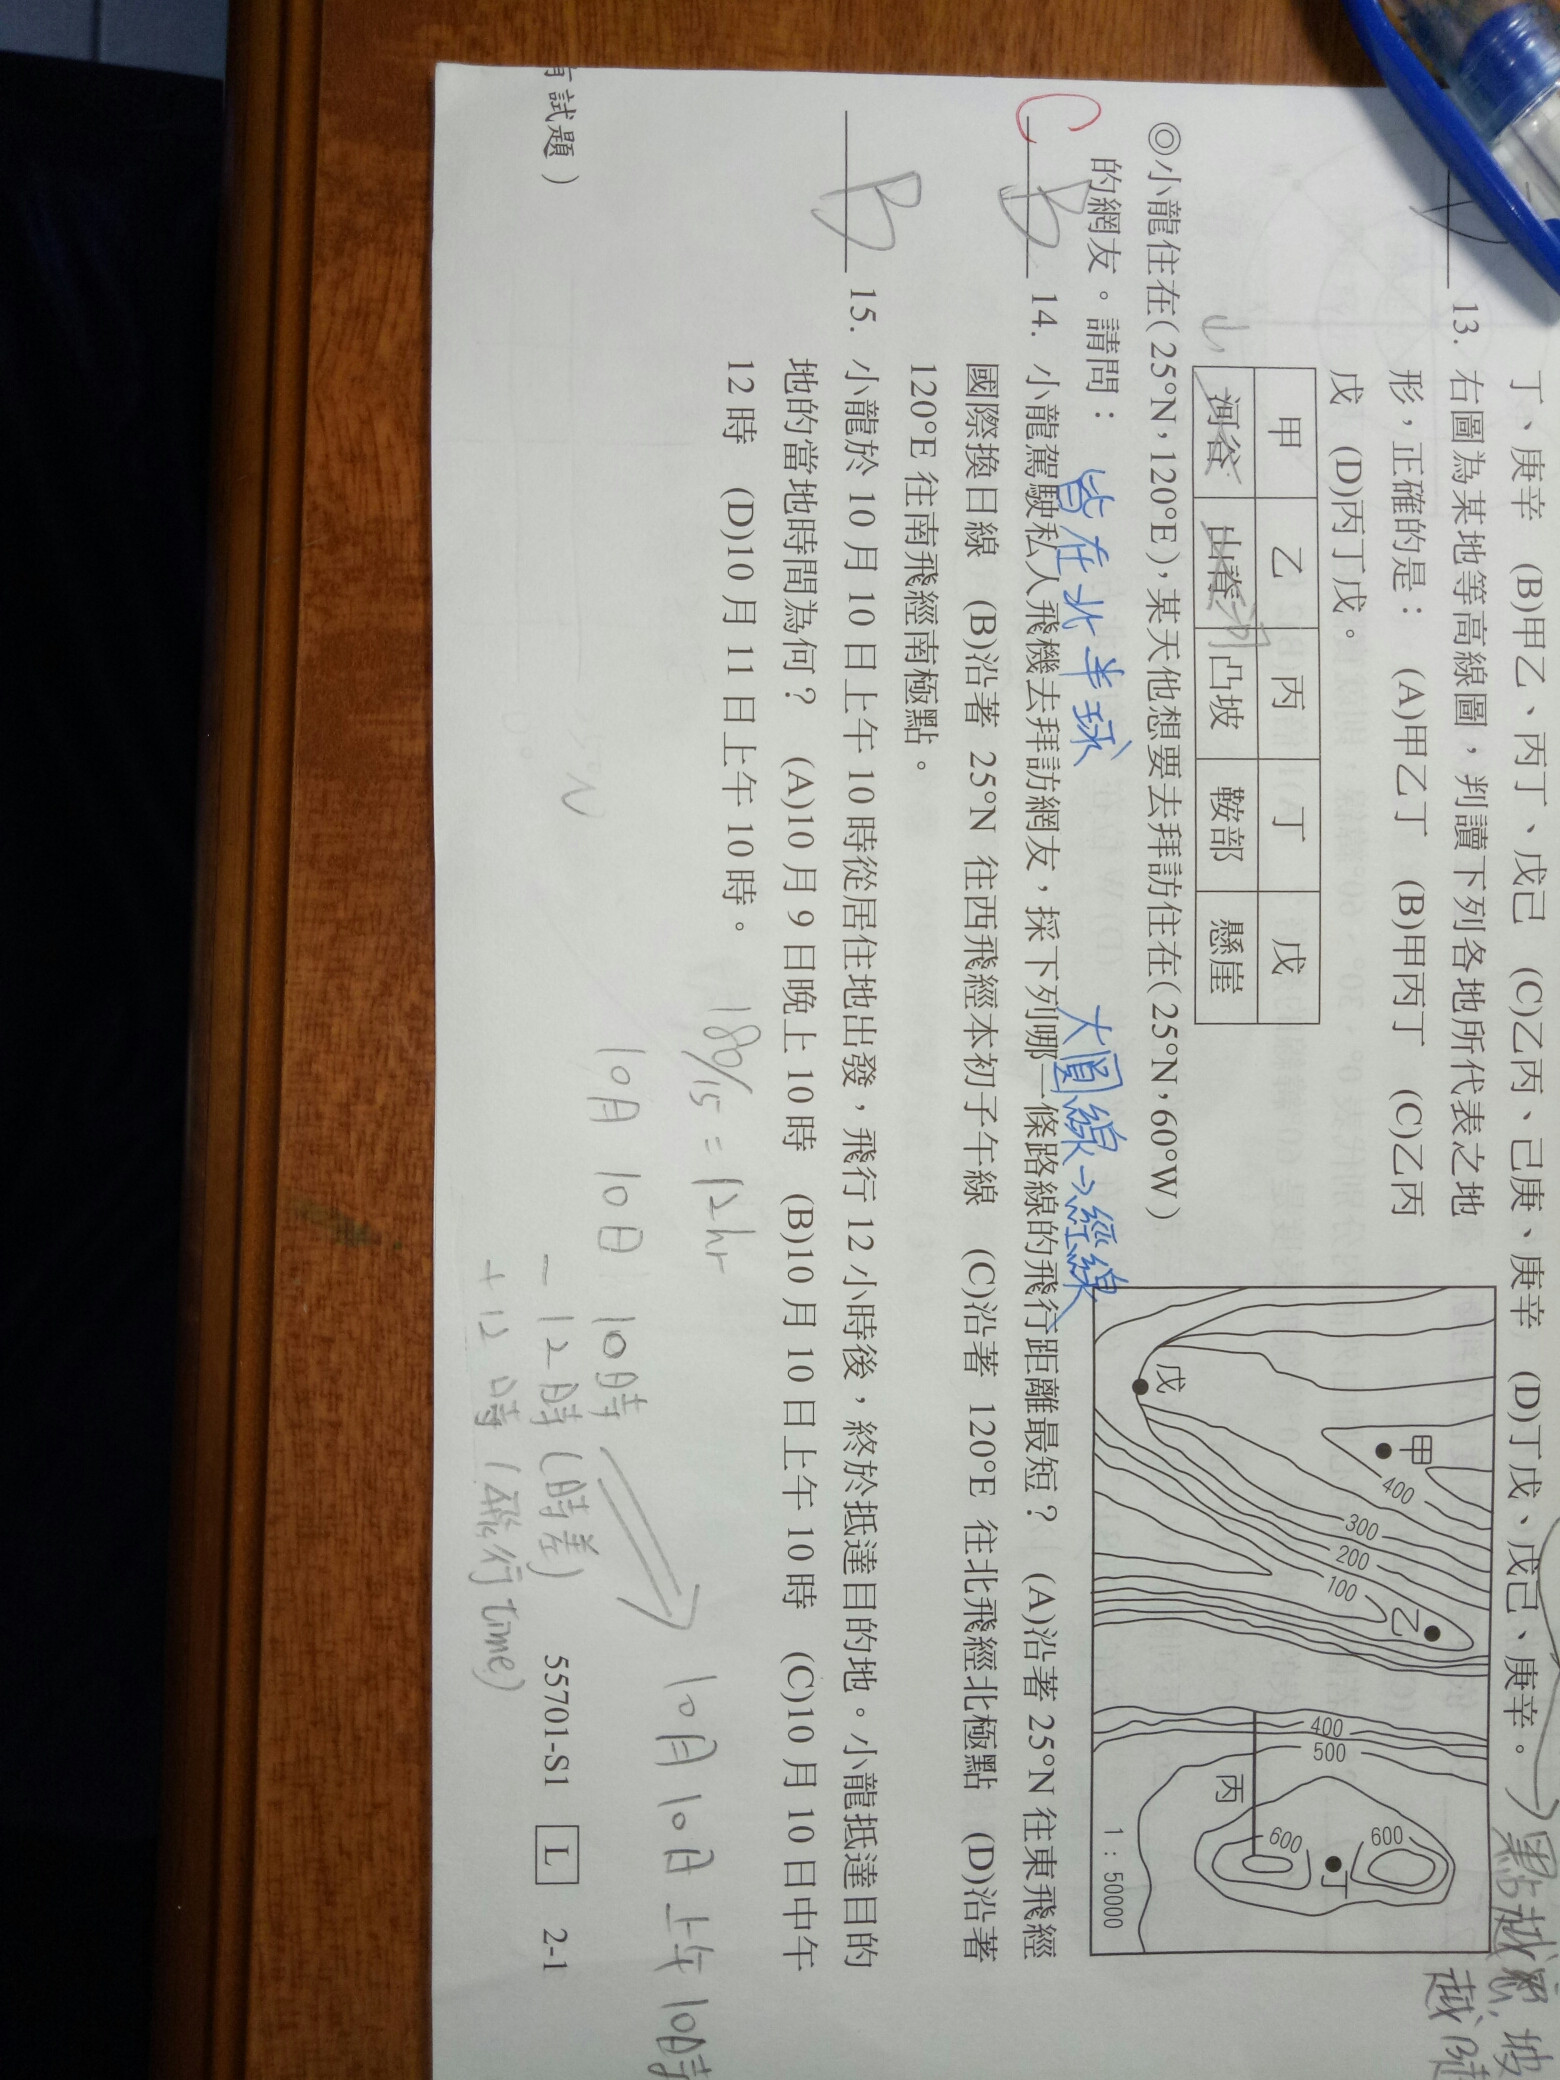 丁、庚辛 (B)甲乙、丙丁、戊己 (C)乙丙、己庚、庚辛 (D)丁戊、戊己、庚辛。
點越密,坡
越陡
13. 右圖為某地等高線圖,判讀下列各地所代表之地
形,正確的是: (A)甲乙丁 (B)甲丙丁 (C)乙丙
戊 (D)丙丁戊。
甲 乙 丙 丁 戊
河谷 山脊 凸坡 鞍部 懸崖
山
河
甲
400
300
200
100
乙
戊
400
500
丙
600
600
丁
1:50000
◎小龍住在(25°N,120°E),某天他想要去拜訪住在(25°N,60°W)
的網友。請問:
皆在北半球
大圓線→經線
C B 14. 小龍駕駛私人飛機去拜訪網友,採下列哪一條路線的飛行距離最短? (A)沿著 25°N 往東飛經
國際換日線 (B)沿著 25°N 往西飛經本初子午線 (C)沿著 120°E 往北飛經北極點 (D)沿著
120°E 往南飛經南極點。
B 15. 小龍於 10 月 10 日上午 10 時從居住地出發,飛行 12 小時後,終於抵達目的地。小龍抵達目的
地的當地時間為何? (A)10 月 9 日晚上 10 時 (B)10 月 10 日上午 10 時 (C)10 月 10 日中午
12 時 (D)10 月 11 日上午 10 時。
180/15=12hr
10月10日 10時
- 12時(時差)
+ 12時(飛行time)
10月10日上午10時
試題)
55701-S1 L 2-1